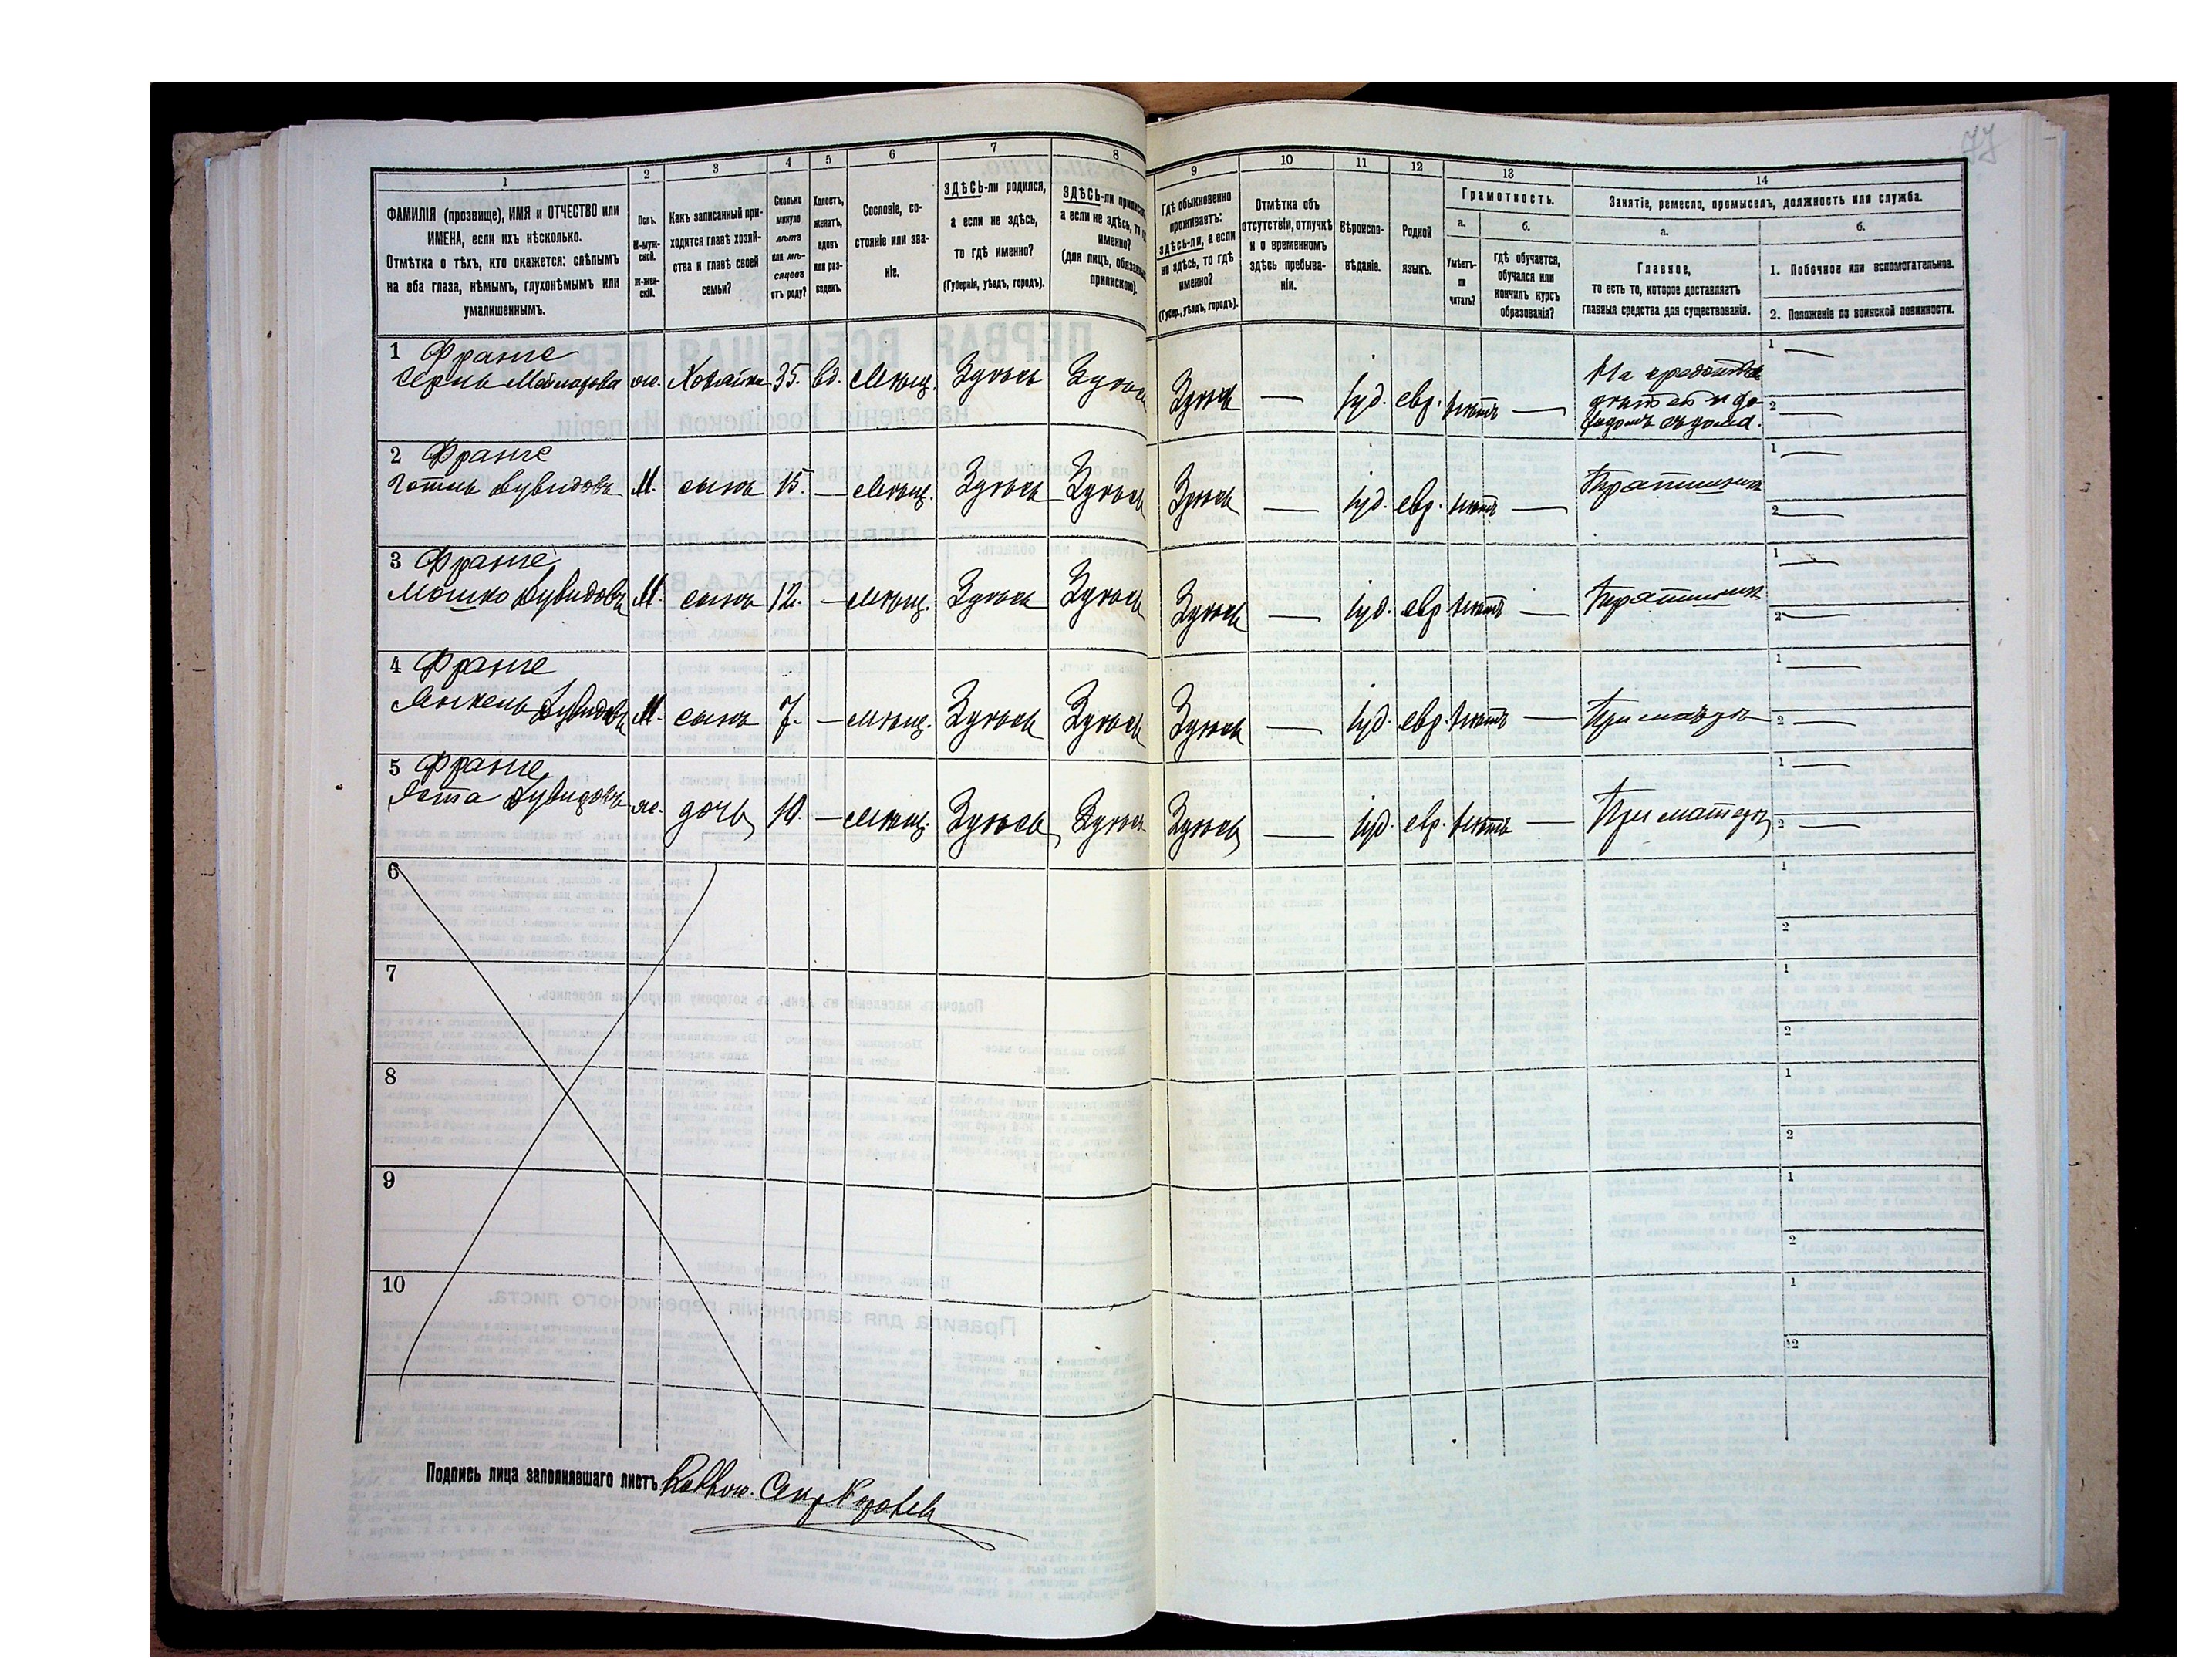 77
1
2
3
4
5
6
7
8
9
10
11
12
13
14
ФАМИЛІЯ (прозвище), ИМЯ и ОТЧЕСТВО или
ИМЕНА, если ихъ нѣсколько.
Отмѣтка о тѣхъ, кто окажется: слѣпымъ
на оба глаза, нѣмымъ, глухонѣмымъ или
умалишеннымъ.
Полъ.
М-муж-
ской.
Ж-жен-
скій.
Какъ записанный при-
ходится главѣ хозяй-
ства и главѣ своей
семьи?
Сколько
минуло
лѣтъ
или мѣ-
сяцевъ
отъ роду?
Холостъ,
женатъ,
вдовъ
или раз-
веденъ.
Сословіе, со-
стояніе или зва-
ніе.
ЗДѢСЬ-ли родился,
а если не здѣсь,
то гдѣ именно?
(Губернія, уѣздъ, городъ).
ЗДѢСЬ-ли
а если не здѣсь, то
именно?
(для лицъ,
припискою).
Гдѣ обыкновенно
проживаетъ:
здѣсь-ли, а если
не здѣсь, то гдѣ
именно?
(Губер., уѣздъ, городъ).
Отмѣтка объ
отсутствіи, отлучкѣ
и о временномъ
здѣсь пребыва-
ніи.
Вѣроиспо-
вѣданіе.
Родной
языкъ.
Грамотность.
а.
Умѣетъ-
ли
читать?
б.
гдѣ обучается,
обучался или
кончилъ курсъ
образованія?
Занятіе, ремесло, промыселъ, должность или служба.
а.
Главное,
то есть то, которое доставляетъ
главныя средства для существованія.
б.
1. Побочное или вспомогательное.
2. Положеніе по воинской повинности.
1 Франге
ж. Хозяйка 35. вд. Мѣщ. Здѣсь Здѣсь Здѣсь — Іуд. евр. нѣтъ —
1 —
2 —
2 Франге
Дувидовъ М. сынъ 15. — Мѣщ. Здѣсь Здѣсь Здѣсь — Іуд. евр. нѣтъ —
1 —
2 —
3 Франге
Мошко Дувидовъ М. сынъ 12. — Мѣщ. Здѣсь Здѣсь Здѣсь — Іуд. евр. нѣтъ —
1 —
2 —
4 Франге
Янкель Дувидовъ М. сынъ 7. — Мѣщ. Здѣсь Здѣсь Здѣсь — Іуд. евр. нѣтъ —
1 —
2 —
5 Франге
Дувидовъ ж. дочь 10. — Мѣщ. Здѣсь Здѣсь Здѣсь — Іуд. евр. нѣтъ — При матери
1 —
2 —
6
1
2
7
1
2
8
1
2
9
1
2
10
1
2
Подпись лица заполнявшаго листъ